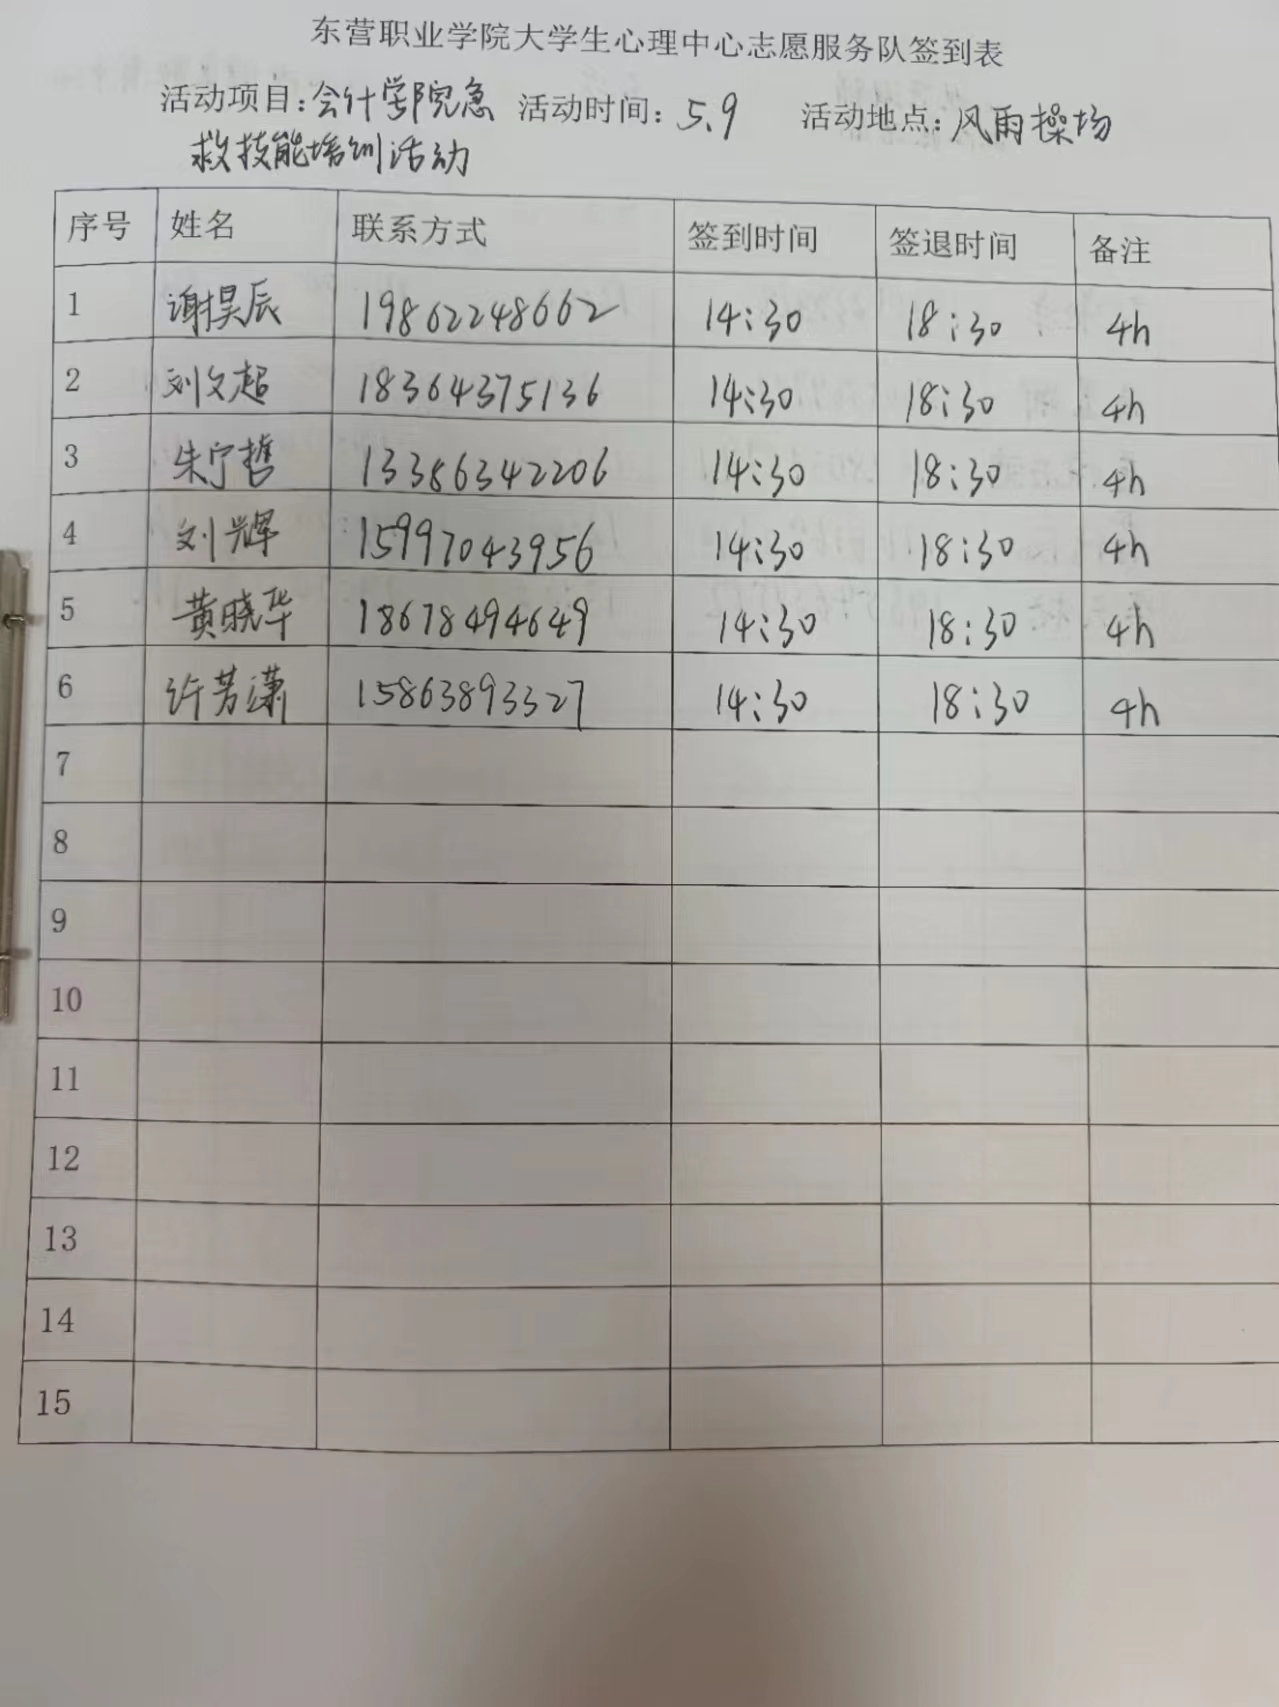 东营职业学院大学生心理中心志愿服务队签到表
活动项目:会计学院急 活动时间:5.9 活动地点:风雨操场
救技能培训活动
序号 姓名 联系方式 签到时间 签退时间 备注
1 谢昊辰 19862248662 14:30 18:30 4h
2 刘文超 18364375136 14:30 18:30 4h
3 朱宁哲 13386342206 14:30 18:30 4h
4 刘辉 15997043956 14:30 18:30 4h
5 黄晓华 18678494649 14:30 18:30 4h
6 许芳潇 15863893327 14:30 18:30 4h
7
8
9
10
11
12
13
14
15